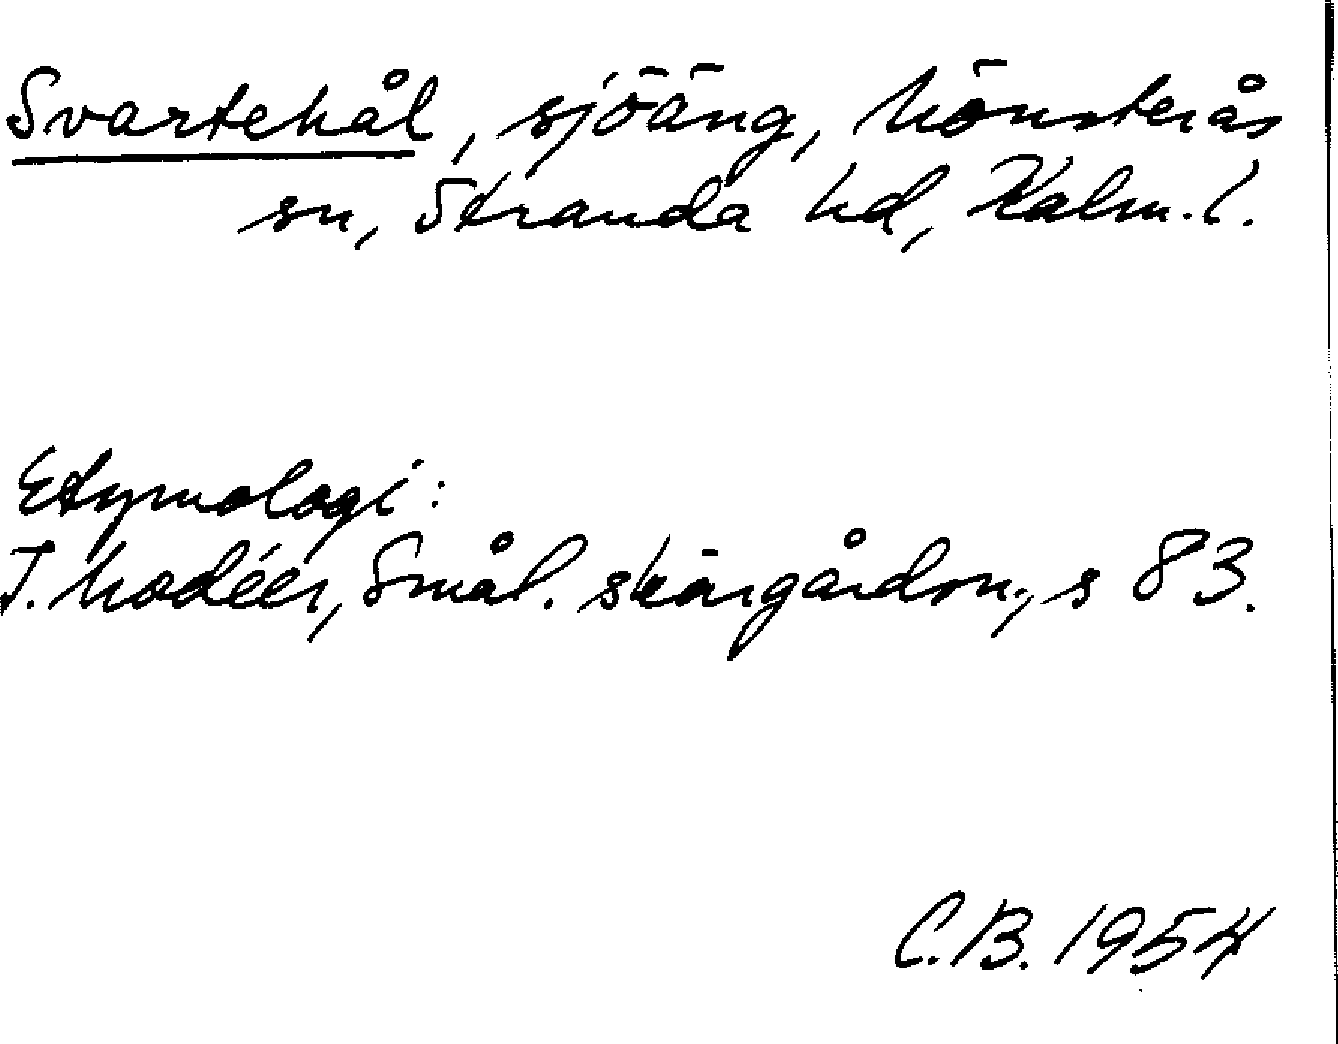 Svartehål, sjöäng, Mönsterås
sn, Stranda hd, Kalm. l.
Etymologi:
I. Modéer, Smål. skärgårdsn., s 83.
C.B. 1954